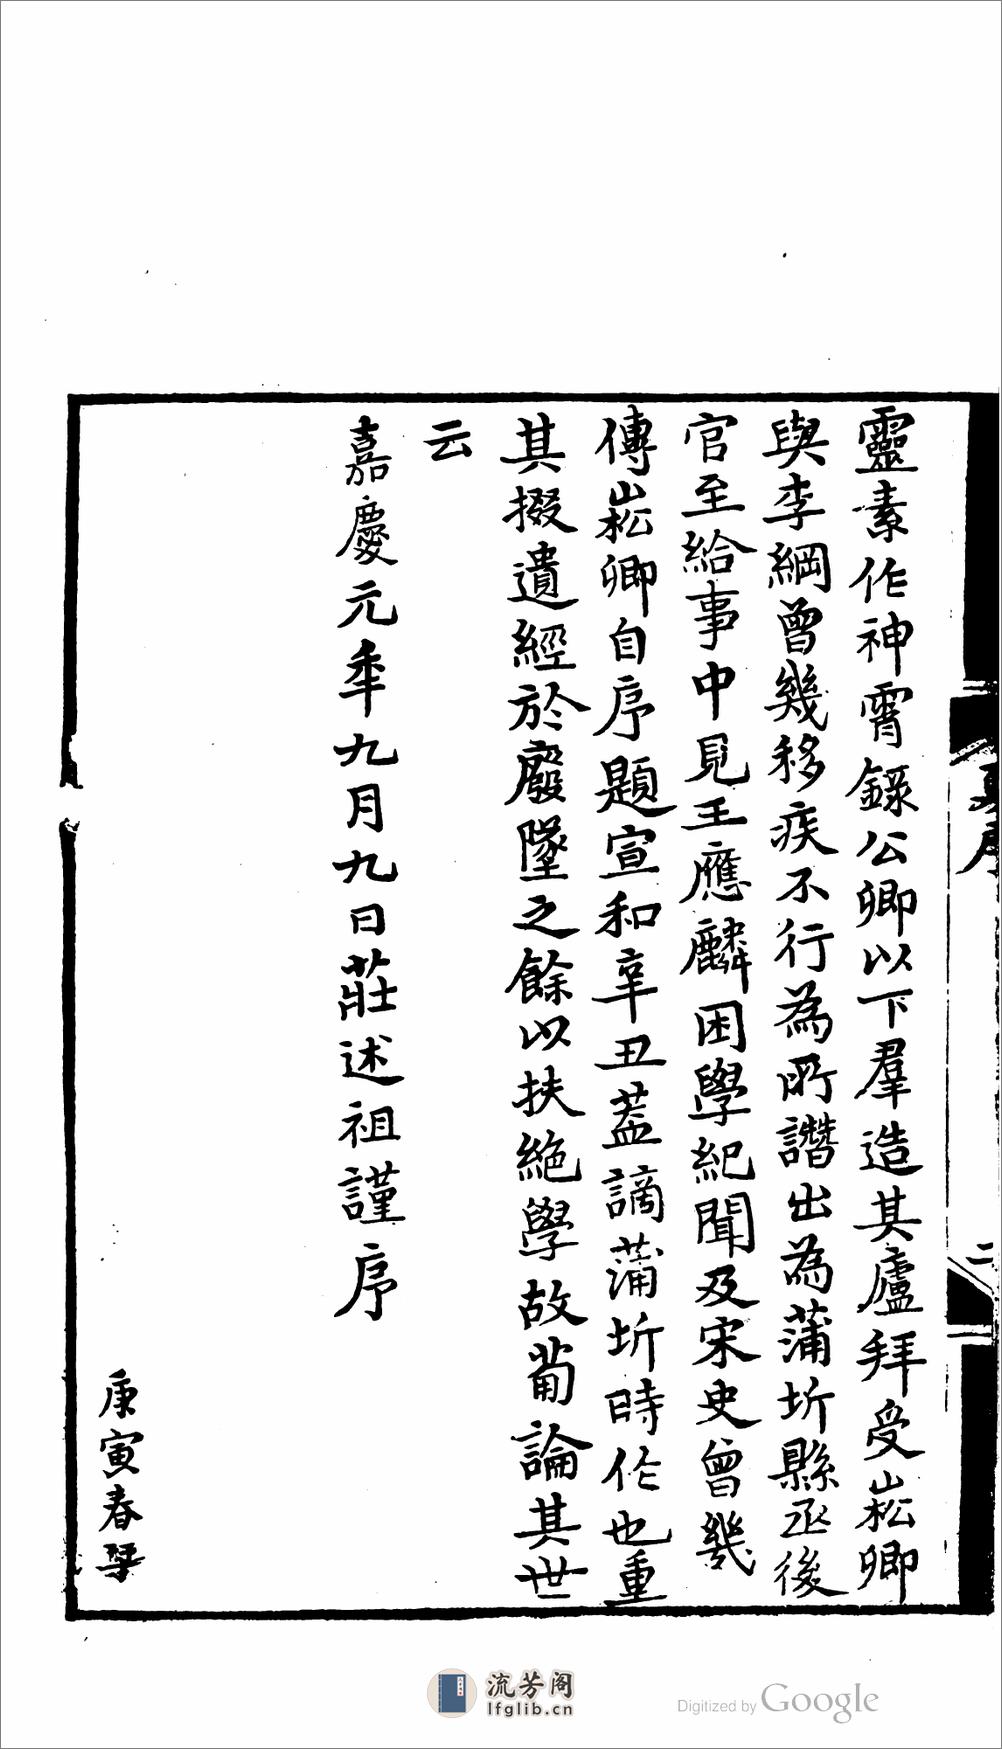 靈素作神霄錄公卿以下羣造其廬拜受崧卿
與李綱曾幾移疾不行為所譖出為蒲圻縣丞後
官至給事中見王應麟困學紀聞及宋史曾幾
傳崧卿自序題宣和辛丑蓋謫蒲圻時作也重
其掇遺經於廢墜之餘以扶絶學故葡論其世
云
嘉慶元年九月九日莊述祖謹序
庚寅春琹
二
流芳阁
lfglib.cn
Digitized by Google